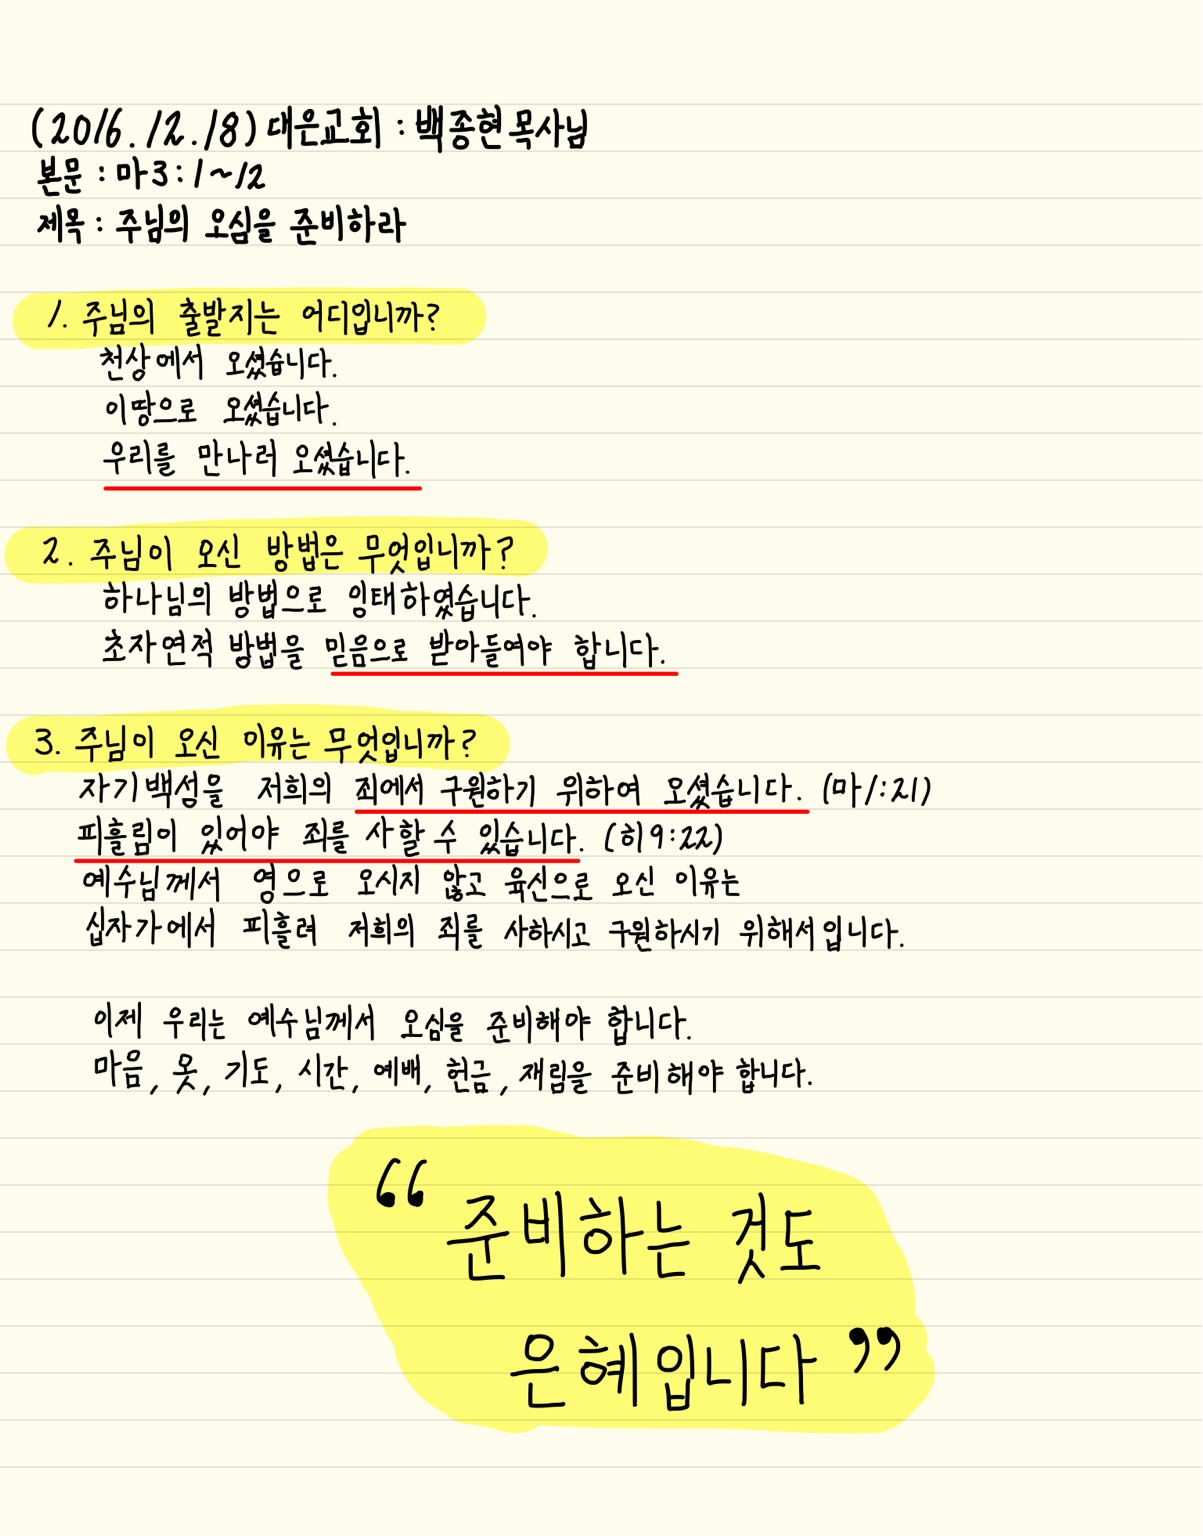 (2016.12.18) 대은교회 : 백종현 목사님
본문 : 마3:1~12
제목 : 주님의 오심을 준비하라
1. 주님의 출발지는 어디입니까?
천상에서 오셨습니다.
이땅으로 오셨습니다.
우리를 만나러 오셨습니다.
2. 주님이 오신 방법은 무엇입니까?
하나님의 방법으로 잉태하였습니다.
초자연적 방법을 믿음으로 받아들여야 합니다.
3. 주님이 오신 이유는 무엇입니까?
자기백성을 저희의 죄에서 구원하기 위하여 오셨습니다. (마1:21)
피흘림이 있어야 죄를 사할 수 있습니다. (히9:22)
예수님께서 영으로 오시지 않고 육신으로 오신 이유는
십자가에서 피흘려 저희의 죄를 사하시고 구원하시기 위해서입니다.
이제 우리는 예수님께서 오심을 준비해야 합니다.
마음, 옷, 기도, 시간, 예배, 헌금, 재림을 준비해야 합니다.
“준비하는 것도
은혜입니다”